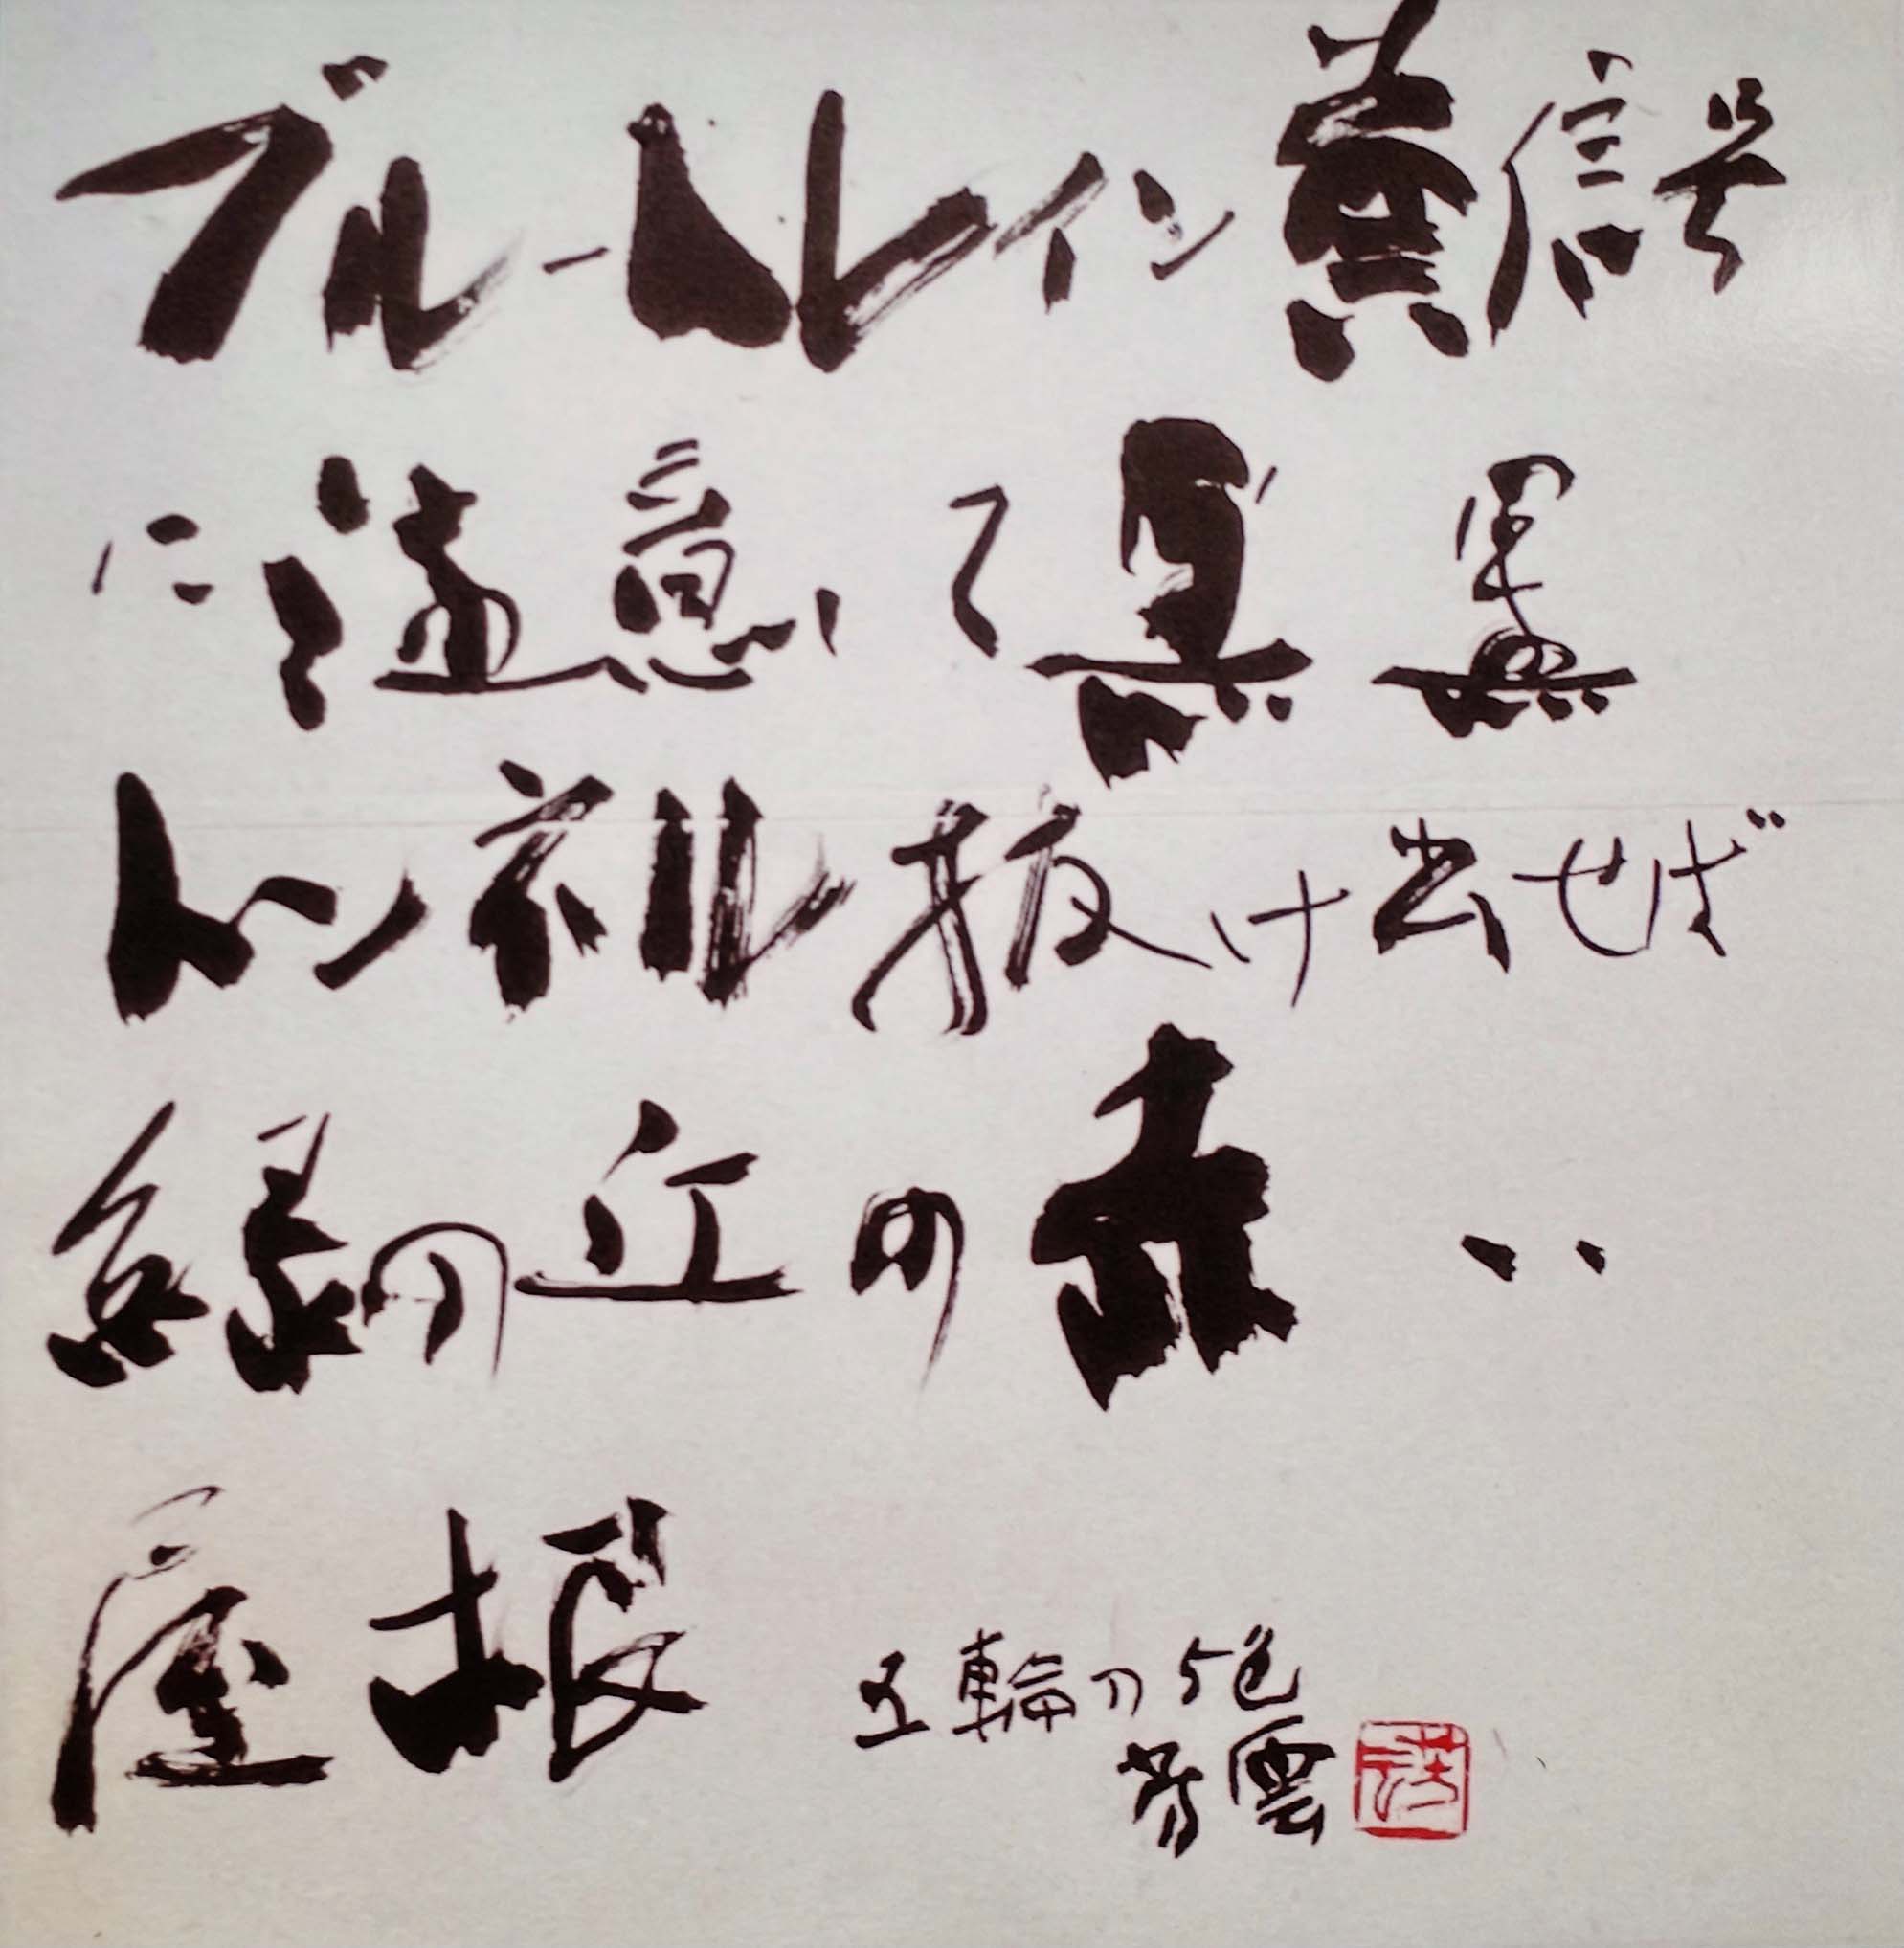 ブルートレイン黄信号
に注意して真黒
トンネル抜け出せば
緑の丘の赤い
屋根
五輪の5色
芳雲